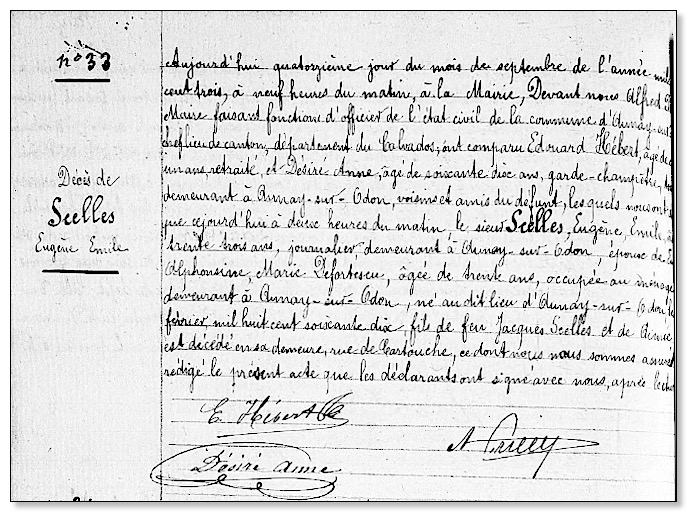 n° 33
Décès de
Scelles
Eugène Emile
Aujourd'hui quatorzième jour du mois de septembre de l'année mil
cent trois, à neuf heures du matin, à la Mairie, Devant nous Alfred
Maire faisant fonctions d'officier de l'état civil de la commune d'Aunay-sur
chef lieu de canton, département du Calvados, ont comparu Edouard Hébert, âgé de
un ans, retraité, et Désiré Anne, âgé de soixante dix ans, garde-champêtre,
demeurant à Aunay-sur-Odon, voisins et amis du défunt, les quels nous ont
que cejourd'hui à deux heures du matin le sieur Scelles, Eugène, Emile, â
trente trois ans, journalier demeurant à Aunay-sur-Odon, époux de
Alphonsine, Marie Defortescu, âgée de trente ans, occupée au ménage
demeurant à Aunay-sur-Odon, né au dit lieu d'Aunay-sur-Odon le
février, mil huit cent soixante dix, fils de feu Jacques Scelles et de
est décédé en sa demeure, rue de Cartouche, ce dont nous nous sommes assuré
rédigé le présent acte que les déclarants ont signé avec nous, après lecture
E. Hébert
Désiré Anne